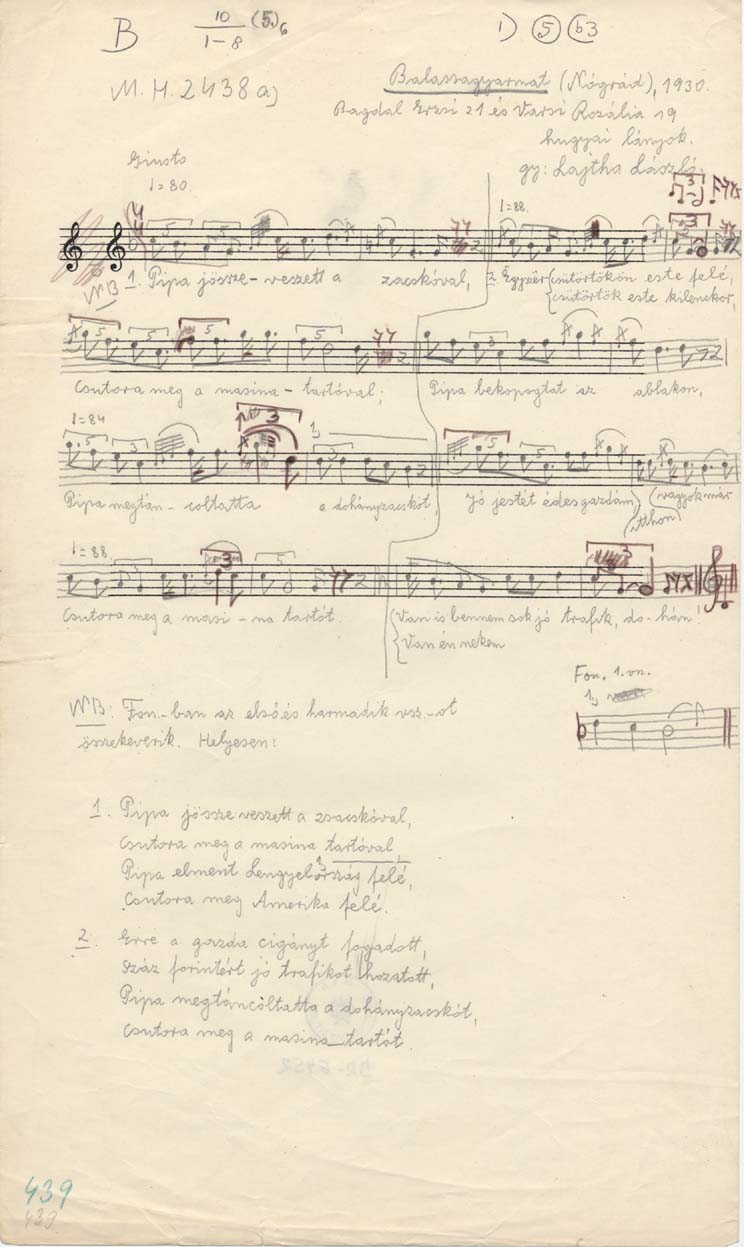 B 10/1-8 (5)6 1) 5 b3
M.H. 2438 a)
Balassagyarmat (Nógrád), 1930.
Bagdal Erzsi 21 és Varsi Rozália 19
hugyai lányok.
gy: Lajtha László
Giusto
♩=80.
♩=88.
NB 1. Pipa jössze-veszett a zacskóval, 2. Egyszer {csütörtökön este felé,
{csütörtök este kilenckor,
Csutora meg a masina-tartóval; Pipa bekopogtat az ablakon,
♩=84
Pipa megtán-coltatta a dohányzacskót, Jó jestét édesgazdám, (vagyok már
itthon)
♩=88.
Csutora meg a masi-na tartót. {Van is bennem sok jó trafik, do-hán!
{Van én nekem
Fon. 1. vn.
1)
NB: Fon.-ban az első és harmadik vsz.-ot
összekeverik. Helyesen:
1. Pipa jössze veszett a zsacskóval,
Csutora meg a masina tartóval
Pipa elment Lengyelország felé,
Csutora meg Amerika felé.
2. Erre a gazda cigányt fogadott,
Száz forintért jó trafikot hozatott,
Pipa megtáncoltatta a dohányzacskót,
Csutora meg a masina tartót.
439
439